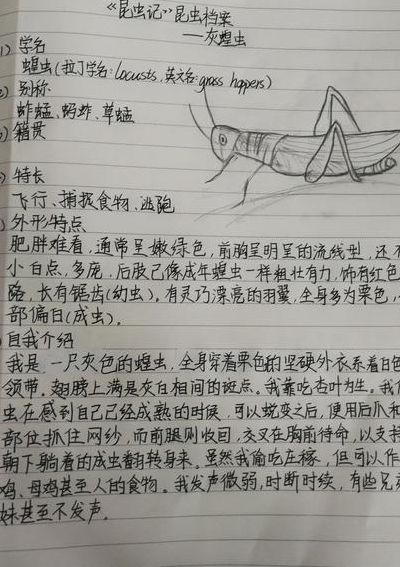 《昆虫记》昆虫档案
——灰蝗虫
) 学名
蝗虫(拉丁学名: locusts, 英文名: grass hoppers)
) 别称
蚱蜢、蚂蚱、草蜢
) 籍贯
) 特长
飞行、捕捉食物、逃跑
) 外形特点
肥胖难看,通常呈嫩绿色,前胸呈明呈的流线型,还
小白点,多疣,后肢已像成年蝗虫一样粗壮有力,饰有红色
路,长有锯齿(幼虫)。有灵巧漂亮的羽翼,全身多为栗色,
部偏白(成虫)。
) 自我介绍
我是一只灰色的蝗虫,全身穿着栗色的坚硬外衣系着白色
领带。翅膀上满是灰白相间的斑点。我靠吃杏叶为生。我
虫在感到自己已经成熟的时候,可以蜕变之后,使用后爪和
部位抓住网纱,而前腿则收回,交叉在胸前待命,以支持
朝下躺着的成虫翻转身来。虽然我偷吃庄稼,但可以作
鸡、母鸡甚至人的食物。我发声微弱,时断时续,有些兄
妹甚至不发声。